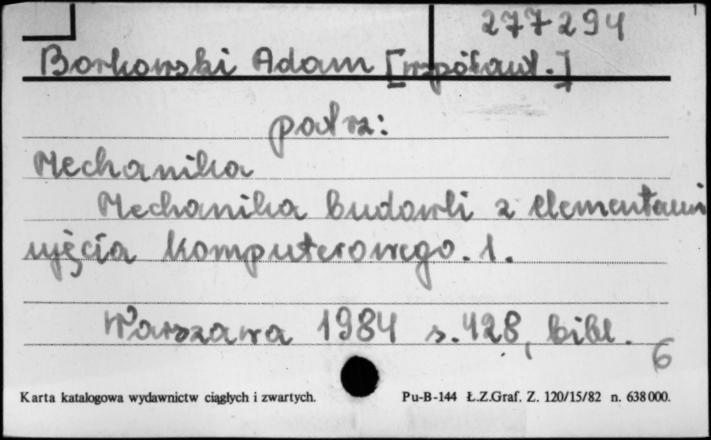 277294
Borkowski Adam [współaut.]
patrz:
Mechanika
Mechanika budowli z elementami
ujęcia komputerowego. 1.
Warszawa 1984 s. 428, bibl.
6
Karta katalogowa wydawnictw ciągłych i zwartych. Pu-B-144 Ł.Z.Graf. Z. 120/15/82 n. 638000.